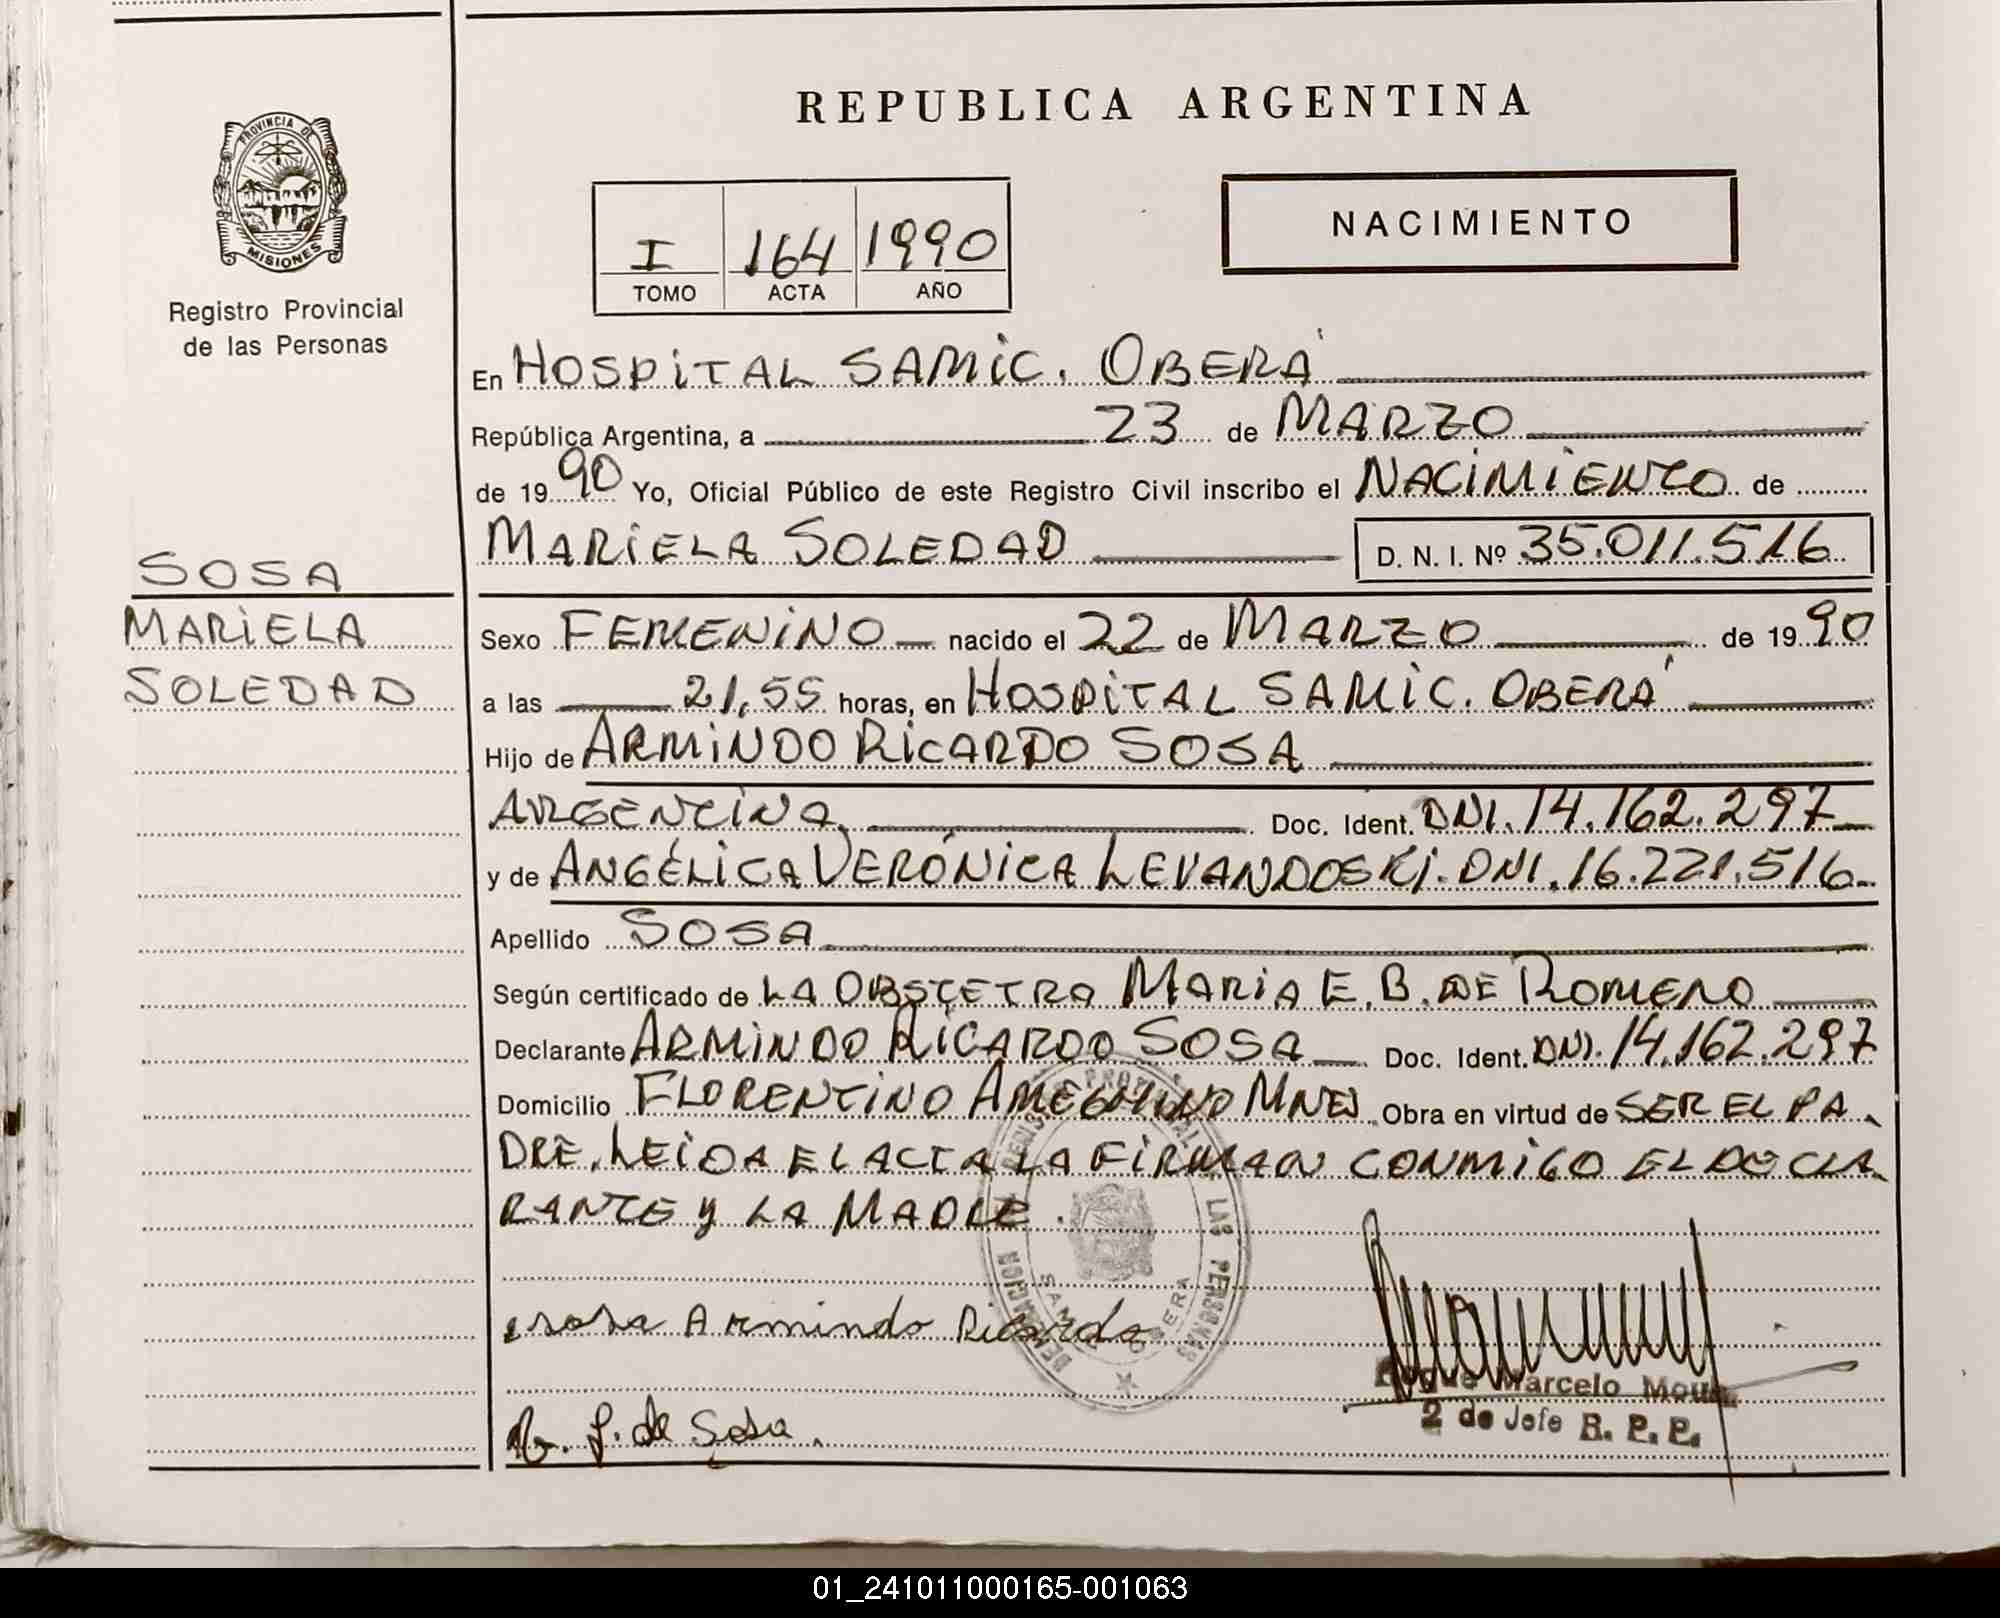 REPUBLICA ARGENTINA
PROVINCIA DE
MISIONES
Registro Provincial
de las Personas
I 164 1990
TOMO ACTA AÑO
NACIMIENTO
En HOSPITAL SAMIC. OBERÁ
República Argentina, a 23 de MARZO
de 1990 Yo, Oficial Público de este Registro Civil inscribo el NACIMIENTO de
MARIELA SOLEDAD D. N. I. Nº 35.011.516
SOSA
MARIELA
SOLEDAD
Sexo FEMENINO nacido el 22 de MARZO de 1990
a las 21,55 horas, en HOSPITAL SAMIC. OBERÁ
Hijo de ARMINDO RICARDO SOSA
ARGENTINO Doc. Ident. DNI. 14.162.297
y de ANGÉLICA VERÓNICA LEVANDOSKI. DNI. 16.221.516
Apellido SOSA
Según certificado de LA OBSTETRA MARIA E. B. DE ROMERO
Declarante ARMINDO RICARDO SOSA Doc. Ident. DNI. 14.162.297
Domicilio FLORENTINO AMEGHINO MNES. Obra en virtud de SER EL PA
DRE. LEIDA EL ACTA LA FIRMAN CONMIGO EL DECLA
RANTE Y LA MADRE.
sosa Armindo Ricardo
de Sosa.
Marcelo
2 do Jefe R. P. P.
01_241011000165-001063